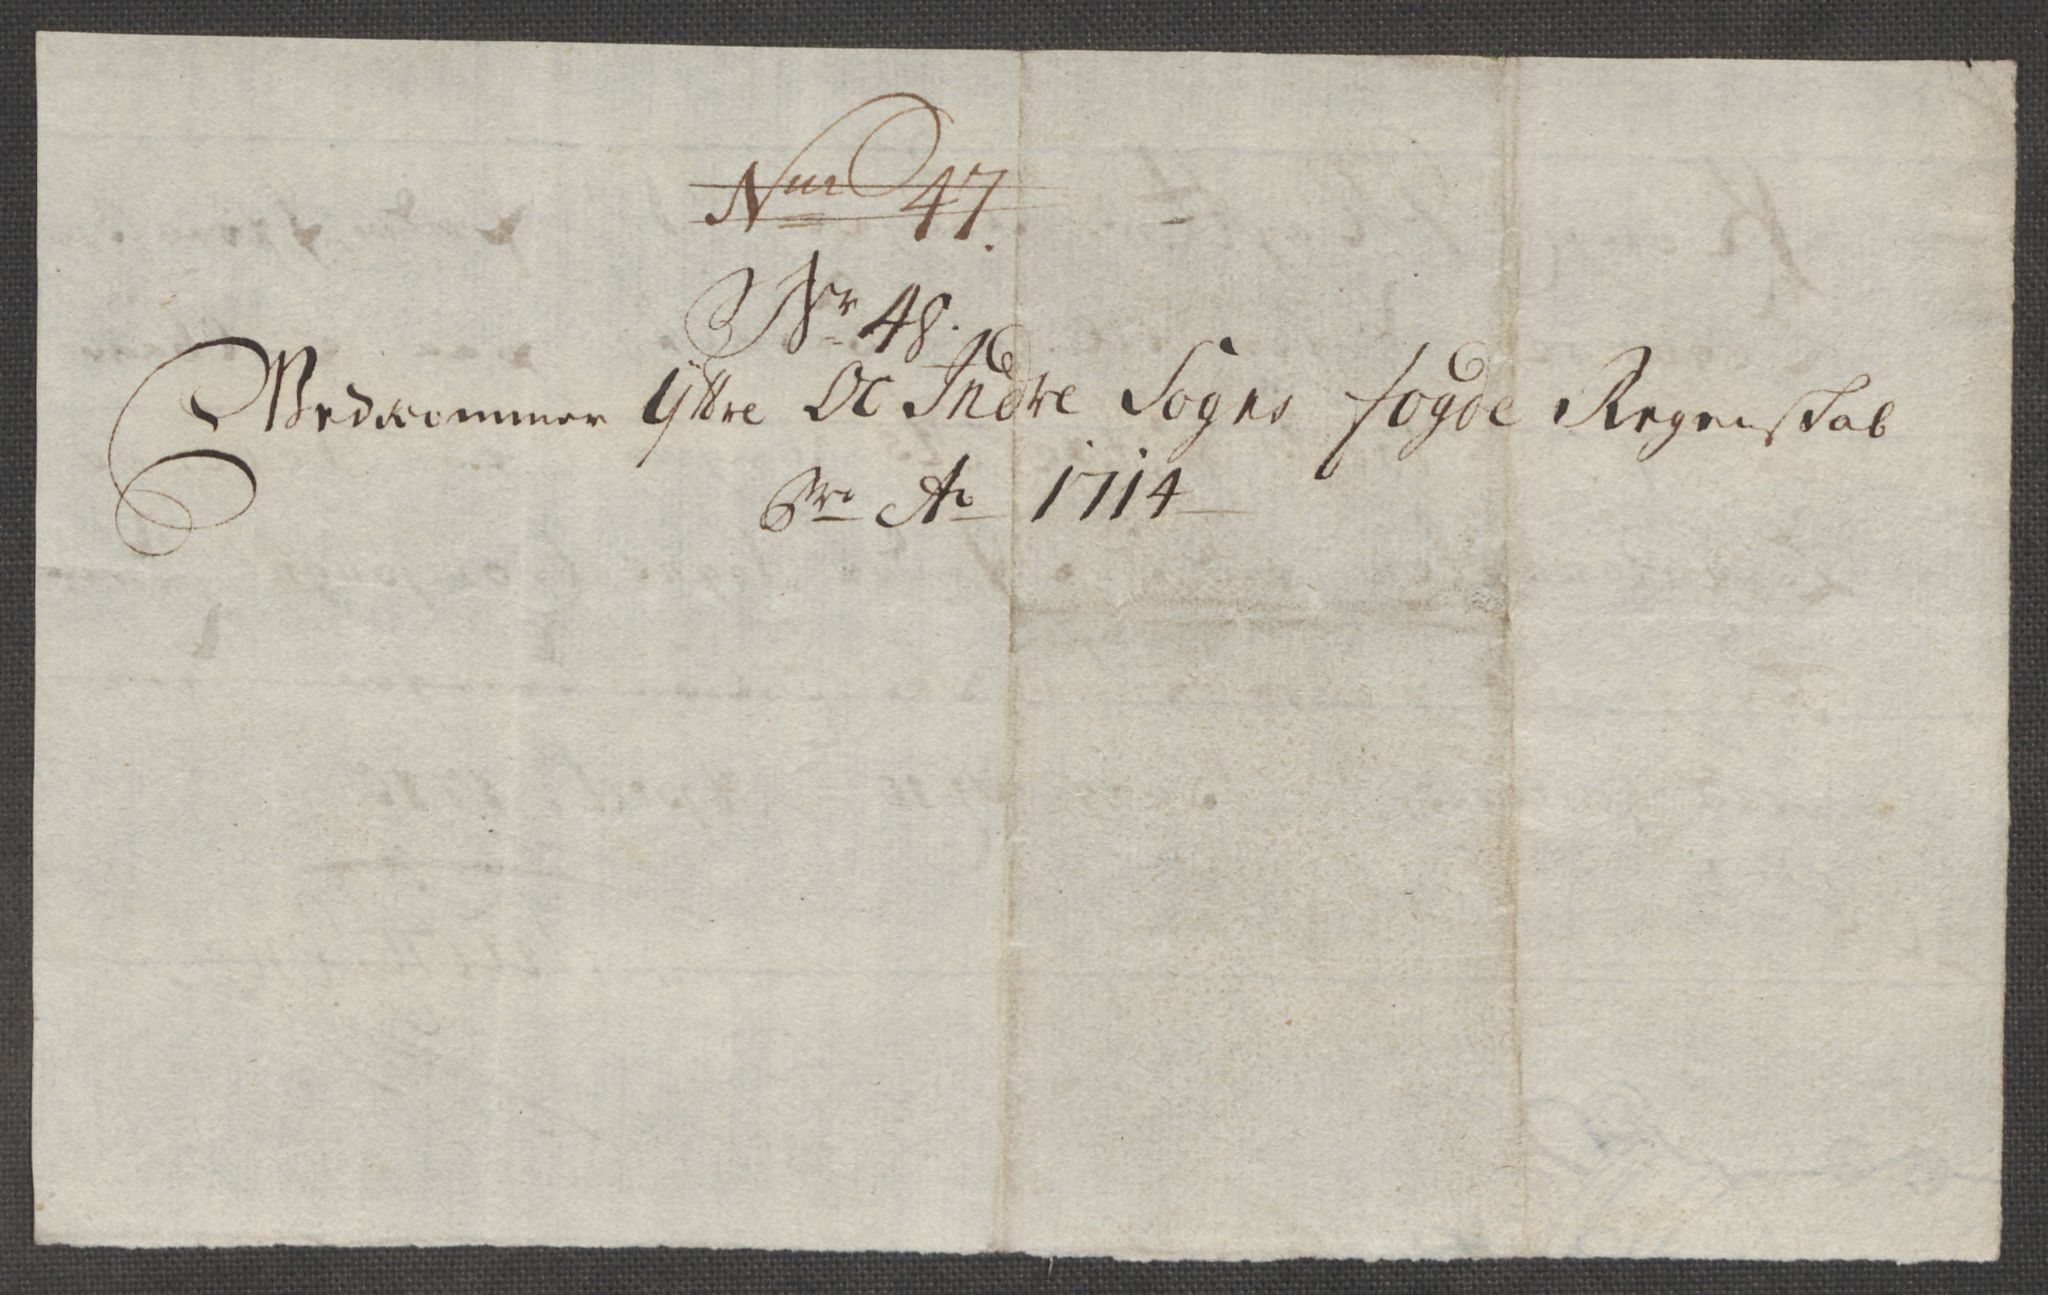 Num 47.
Nr 48.
Vedkommer Yttre Oc Indre Sogns fogde Regenskab
Pro Ao 1714